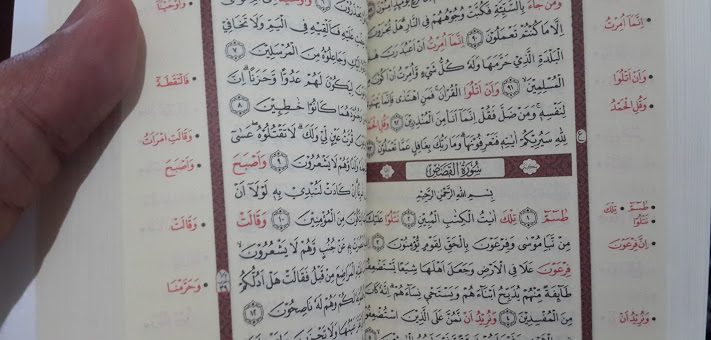 وَمَنْ جَاءَ بِالسَّيِّئَةِ فَكُبَّتْ وُجُوهُهُمْ فِي النَّارِ هَلْ
اِلَّا مَا كُنْتُمْ تَعْمَلُونَ ﴿٩٠﴾ اِنَّمَا اُمِرْتُ اَنْ اَعْبُدَ رَبَّ
الْبَلْدَةِ الَّذِي حَرَّمَهَا وَلَهُ كُلُّ شَيْءٍ وَاُمِرْتُ اَنْ اَكُونَ
الْمُسْلِمِينَ ﴿٩١﴾ وَاَنْ اَتْلُوَا الْقُرْاٰنَ فَمَنِ اهْتَدٰى فَاِنَّمَا
لِنَفْسِهِ وَمَنْ ضَلَّ فَقُلْ اِنَّمَا اَنَا مِنَ الْمُنْذِرِينَ ﴿٩٢﴾ وَقُلِ الْحَمْدُ
لِلّٰهِ سَيُرِيكُمْ اٰيَاتِهِ فَتَعْرِفُونَهَا وَمَا رَبُّكَ بِغَافِلٍ عَمَّا تَعْمَلُونَ
سُورَةُ الْقَصَصِ
بِسْمِ اللّٰهِ الرَّحْمٰنِ الرَّحِيمِ
طٰسٓمٓ ﴿١﴾ تِلْكَ اٰيَاتُ الْكِتَابِ الْمُبِينِ ﴿٢﴾ نَتْلُوا عَلَيْكَ
مِنْ نَبَاِ مُوسٰى وَفِرْعَوْنَ بِالْحَقِّ لِقَوْمٍ يُؤْمِنُونَ ﴿٣﴾
فِرْعَوْنَ عَلَا فِي الْاَرْضِ وَجَعَلَ اَهْلَهَا شِيَعًا يَسْتَضْعِفُ
طَائِفَةً مِنْهُمْ يُذَبِّحُ اَبْنَاءَهُمْ وَيَسْتَحْيِ نِسَاءَهُمْ اِنَّهُ كَانَ
مِنَ الْمُفْسِدِينَ ﴿٤﴾ وَنُرِيدُ اَنْ نَمُنَّ عَلَى الَّذِينَ اسْتُضْعِفُوا
اِنَّمَا اُمِرْتُ
وَاَنْ اَتْلُوَا
وَقُلِ الْحَمْدُ
طٰسٓمٓ • تِلْكَ
نَتْلُوا
اِنَّ فِرْعَوْنَ
وَنُرِيدُ اَنْ
عَلَيْهِ فَاَلْقِيهِ فِي الْيَمِّ وَلَا تَخَافِي
اِلَيْكِ وَجَاعِلُوهُ مِنَ الْمُرْسَلِينَ ﴿٧﴾
لِيَكُونَ لَهُمْ عَدُوًّا وَحَزَنًا اِنَّ
وَجُنُودَهُمَا كَانُوا خَاطِئِينَ ﴿٨﴾
قُرَّتُ عَيْنٍ لِي وَلَكَ لَا تَقْتُلُوهُ عَسٰى
وَلَدًا وَهُمْ لَا يَشْعُرُونَ ﴿٩﴾ وَاَصْبَحَ
اِنْ كَادَتْ لَتُبْدِي بِهِ لَوْلَا اَنْ
مِنَ الْمُؤْمِنِينَ ﴿١٠﴾ وَقَالَتْ
بِهِ عَنْ جُنُبٍ وَهُمْ لَا يَشْعُرُونَ
الْمَرَاضِعَ مِنْ قَبْلُ فَقَالَتْ هَلْ اَدُلُّكُمْ
لَكُمْ وَهُمْ لَهُ نَاصِحُونَ ﴿١٢﴾
وَاَوْحَيْنَا
فَالْتَقَطَهُ
وَقَالَتِ امْرَاَتُ
وَاَصْبَحَ
وَقَالَتْ
وَحَرَّمْنَا